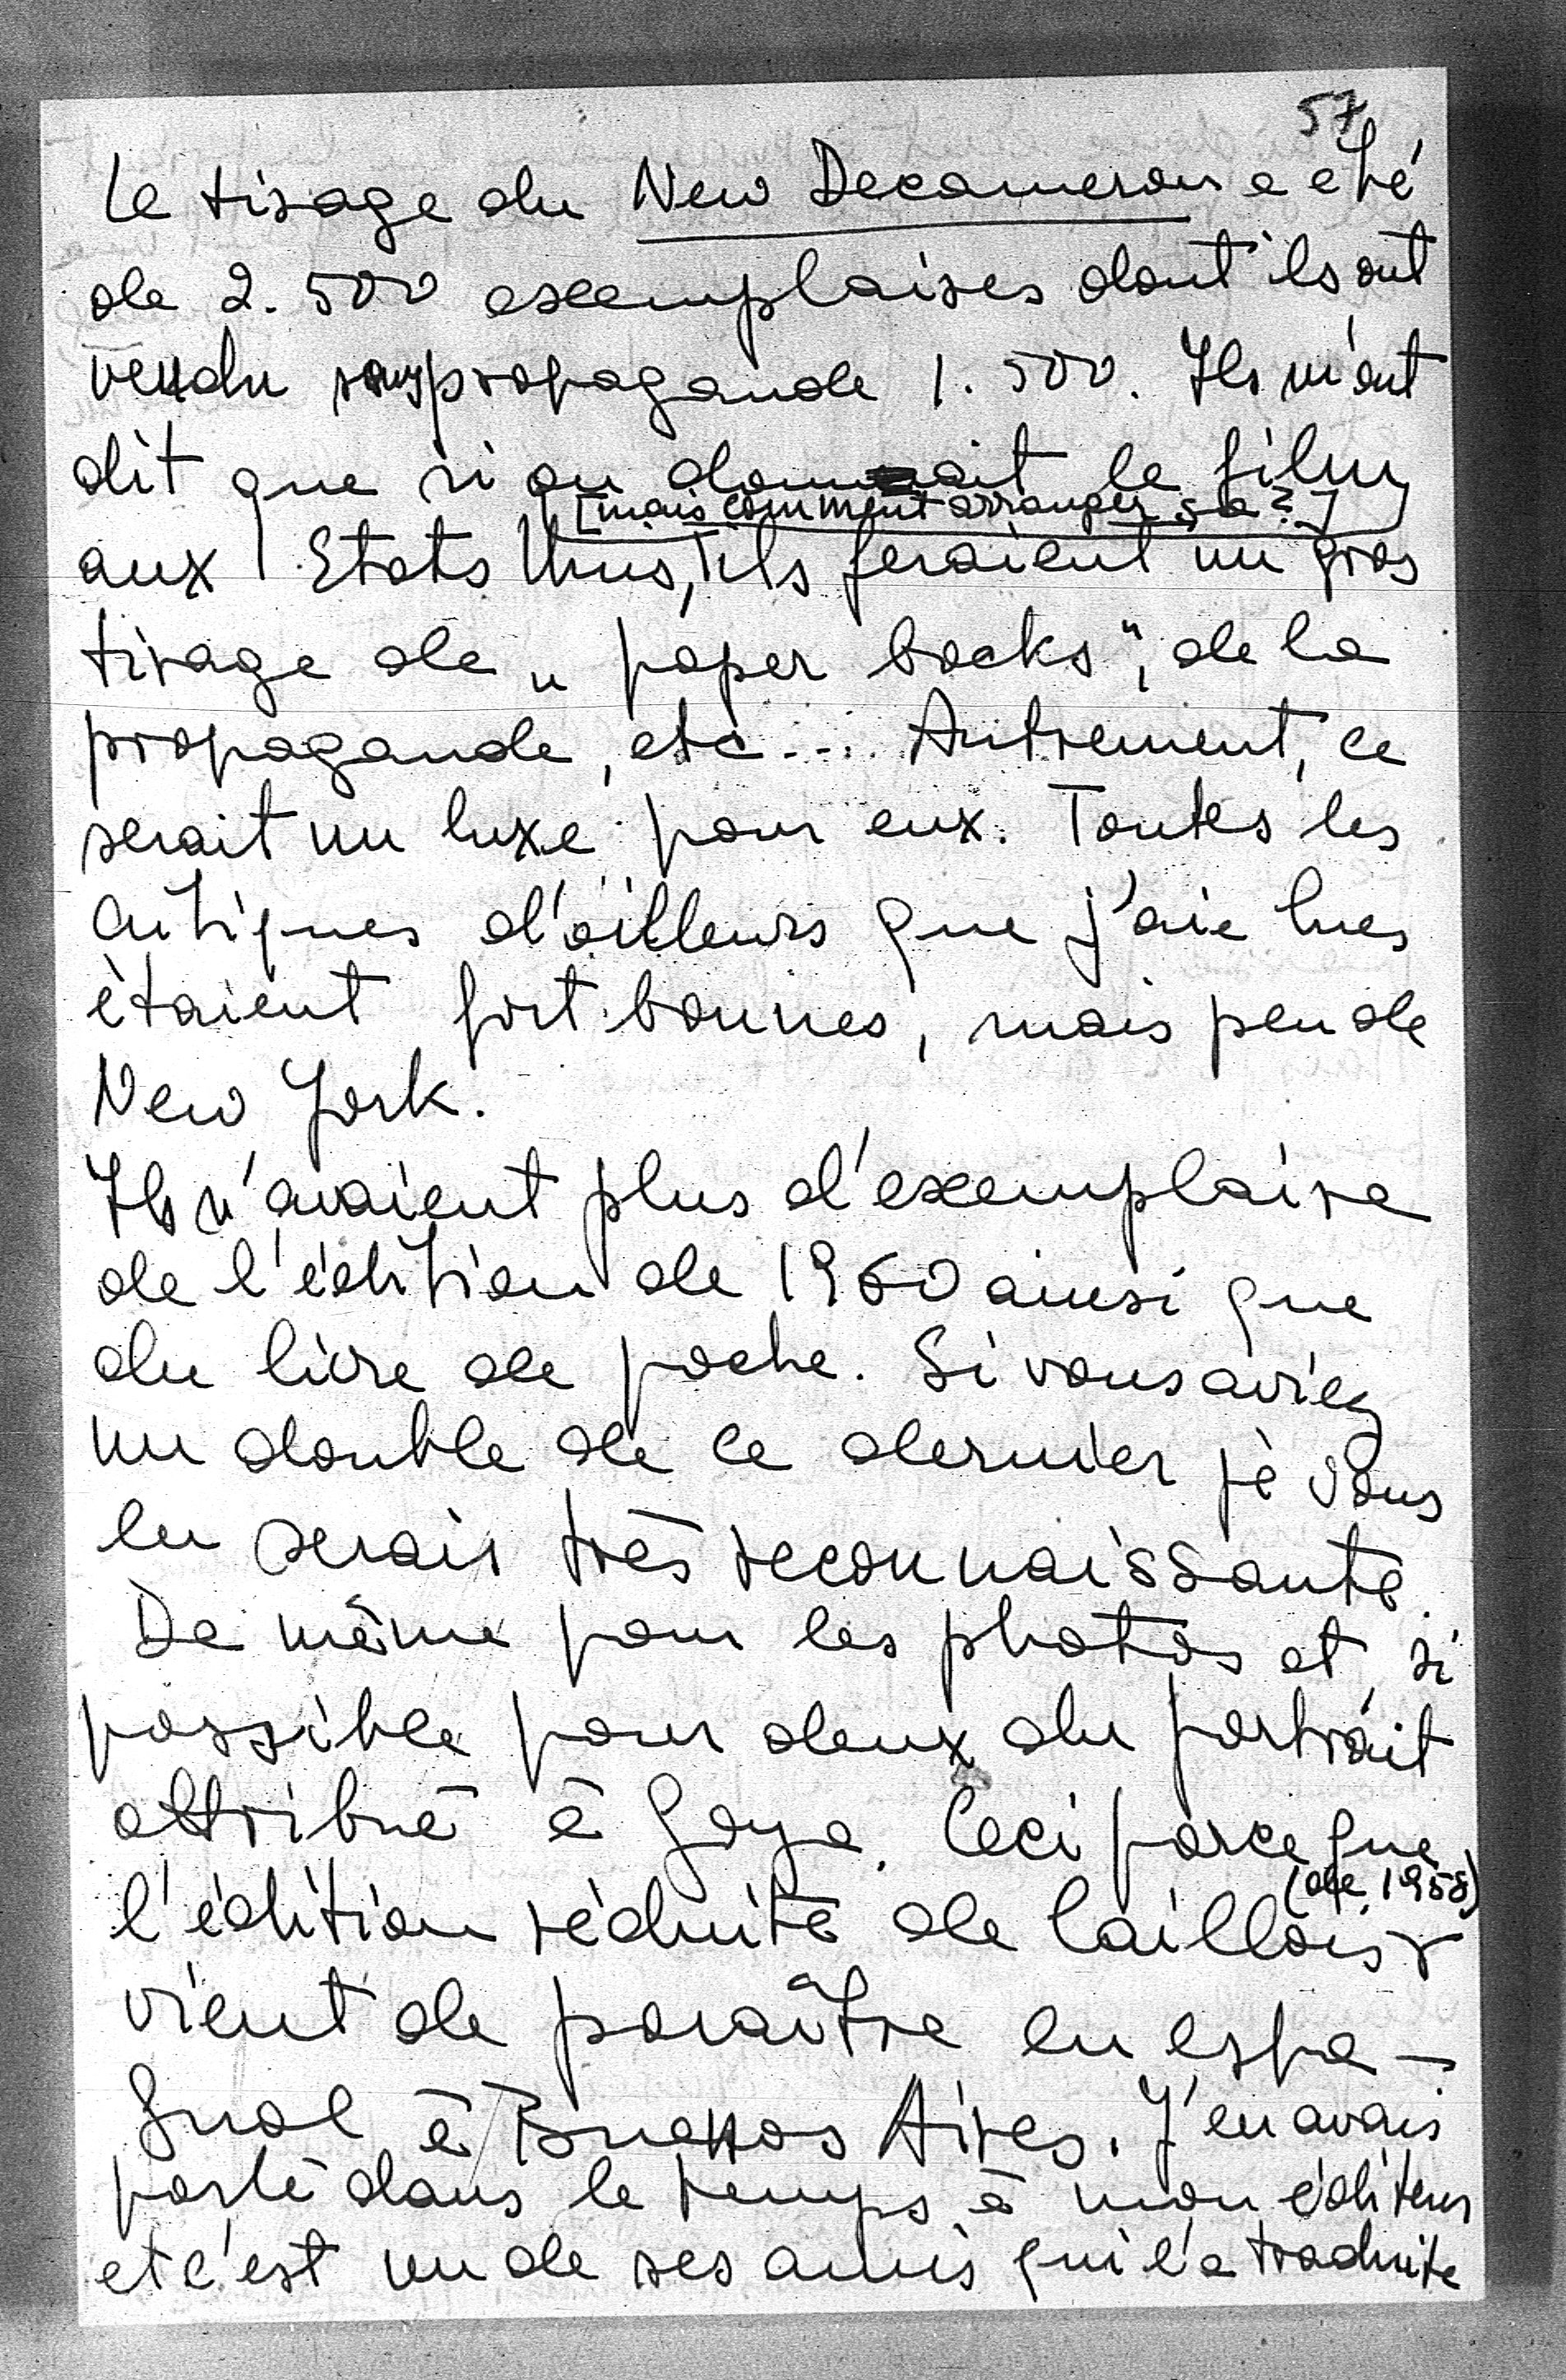 57
Le tirage du New Decameron a été
de 2.500 exemplaires dont ils ont
vendu sans propagande 1.500. Ils m'ont
dit que si on donnait le film
[mais comment arranger ça?]
aux Etats Unis, ils feraient un gros
tirage de „paper backs", de la
propagande, etc... Autrement, ce
serait un luxe pour eux. Toutes les
critiques d'ailleurs que j'aie lues
étaient fort bonnes, mais peu de
New York.
Ils n'avaient plus d'exemplaire
de l'édition de 1960 ainsi que
du livre de poche. Si vous aviez
un double de ce dernier je vous
en serais très reconnaissante.
De même pour les photos et si
possible pour deux du portrait
attribué à Goya. Ceci parce que
(de 1958)
l'édition réduite de Caillois
vient de paraître en espa-
gnol à Buenos Aires. J'en avais
parlé dans le temps à mon éditeur
et c'est un de ses amis qui l'a traduite